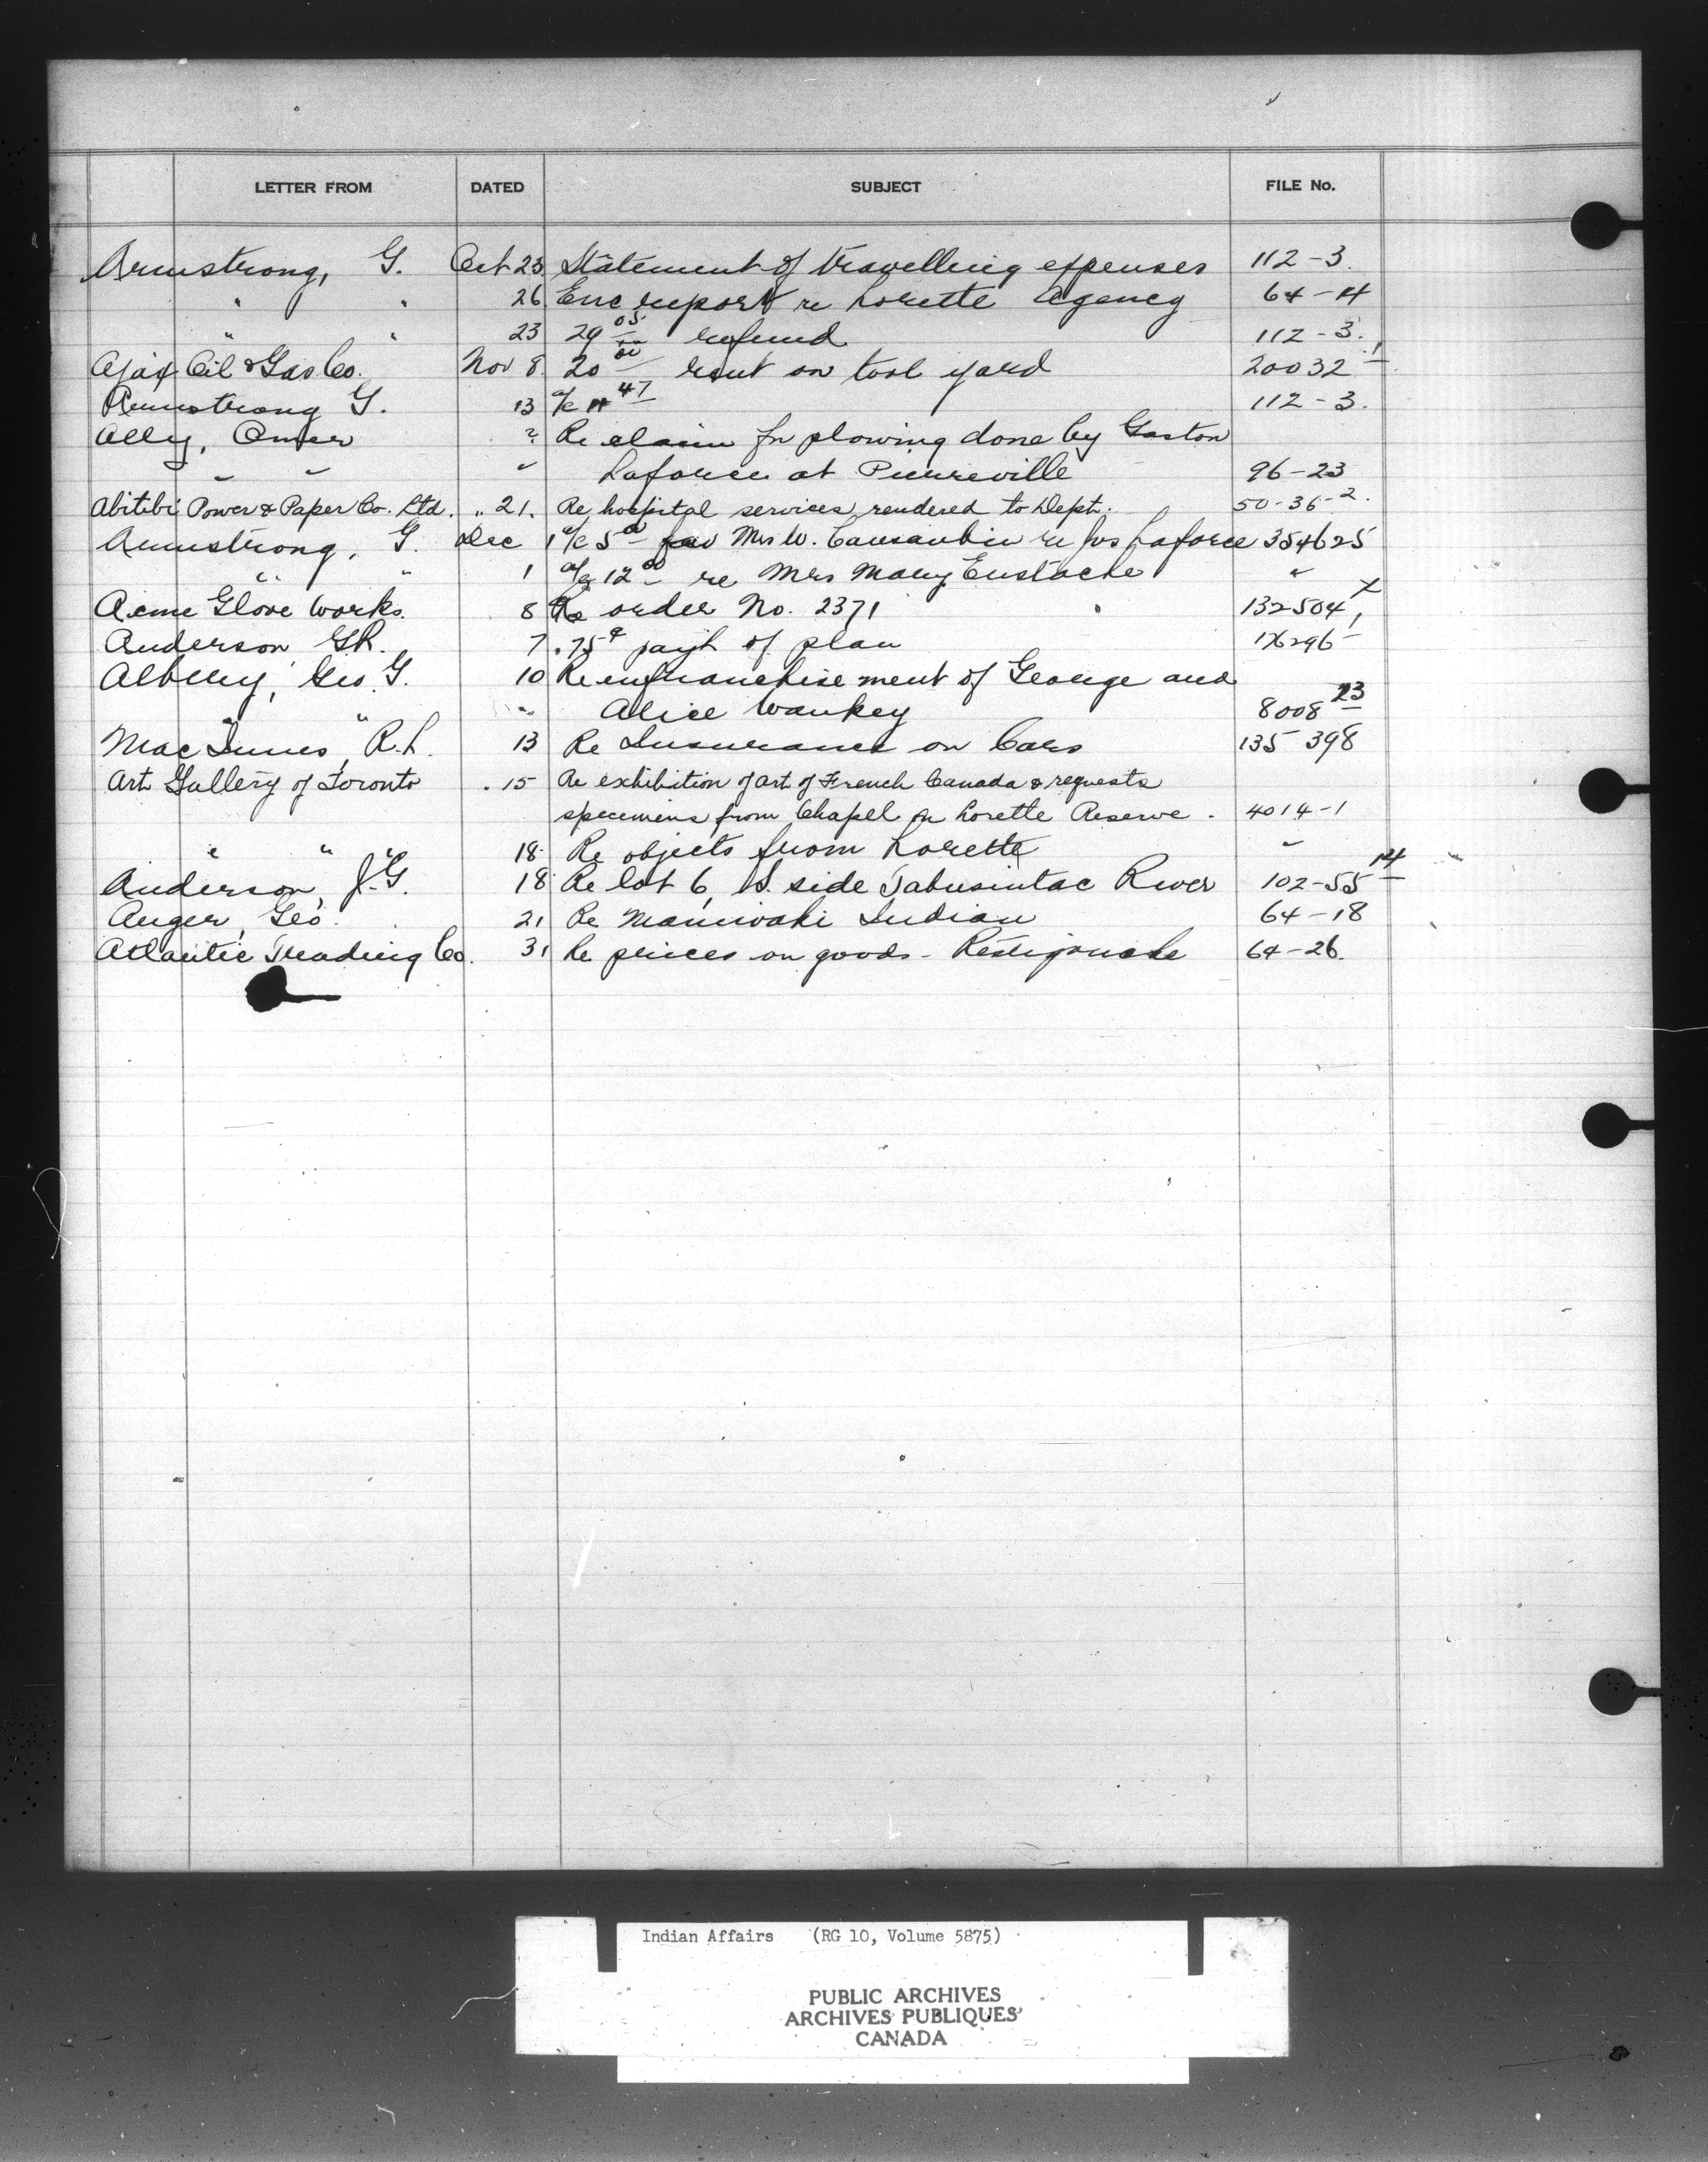 LETTER FROM DATED SUBJECT FILE No.
Armstrong, G. Oct 23 Statement of travelling expenses 112-3.
" " 26 Enc report re Lorette Agency 64-4
" " 23 29 05 refund 112-3.
Ajax Oil & Gas Co. Nov 8 20 00 rent on tool yard 20032-1
Armstrong G. 13 a/c 11 47 112-3.
Ally, Omer ? Re claim for plowing done by Gaston
" " " Laforce at Pierreville 96-23
Abitibi Power & Paper Co. Ltd. " 21. Re hospital services rendered to Dept. 50-36-2.
Armstrong, G. Dec 1 a/c 5 00 fav Mrs W. re Jos Laforce 354625
" " 1 a/c 12 00 re Mrs Mary Eustache "
Acme Glove Works. 8 Re order No. 2371 132504
Anderson G.R. 7 .75¢ payt of plan
Albery, Geo. G. 10 Re enfranchisement of George and
" " " Alice Wankey 8008 23
MacInnes, R.L. 13 Re Insurance on Cars 135398
Art Gallery of Toronto . 15 Re exhibition of art of French Canada & requests
specimens from Chapel on Lorette Reserve. 4014-1
" " 18 Re objects from Lorette "
Anderson, J.G. 18 Re lot 6, S. side Tabusintac River 102-55 14
Auger, Geo. 21 Re Maniwaki Indian 64-18
Atlantic Trading Co. 31 Re prices on goods - Restigouche 64-26.
Indian Affairs (RG 10, Volume 5875)
PUBLIC ARCHIVES
ARCHIVES PUBLIQUES
CANADA